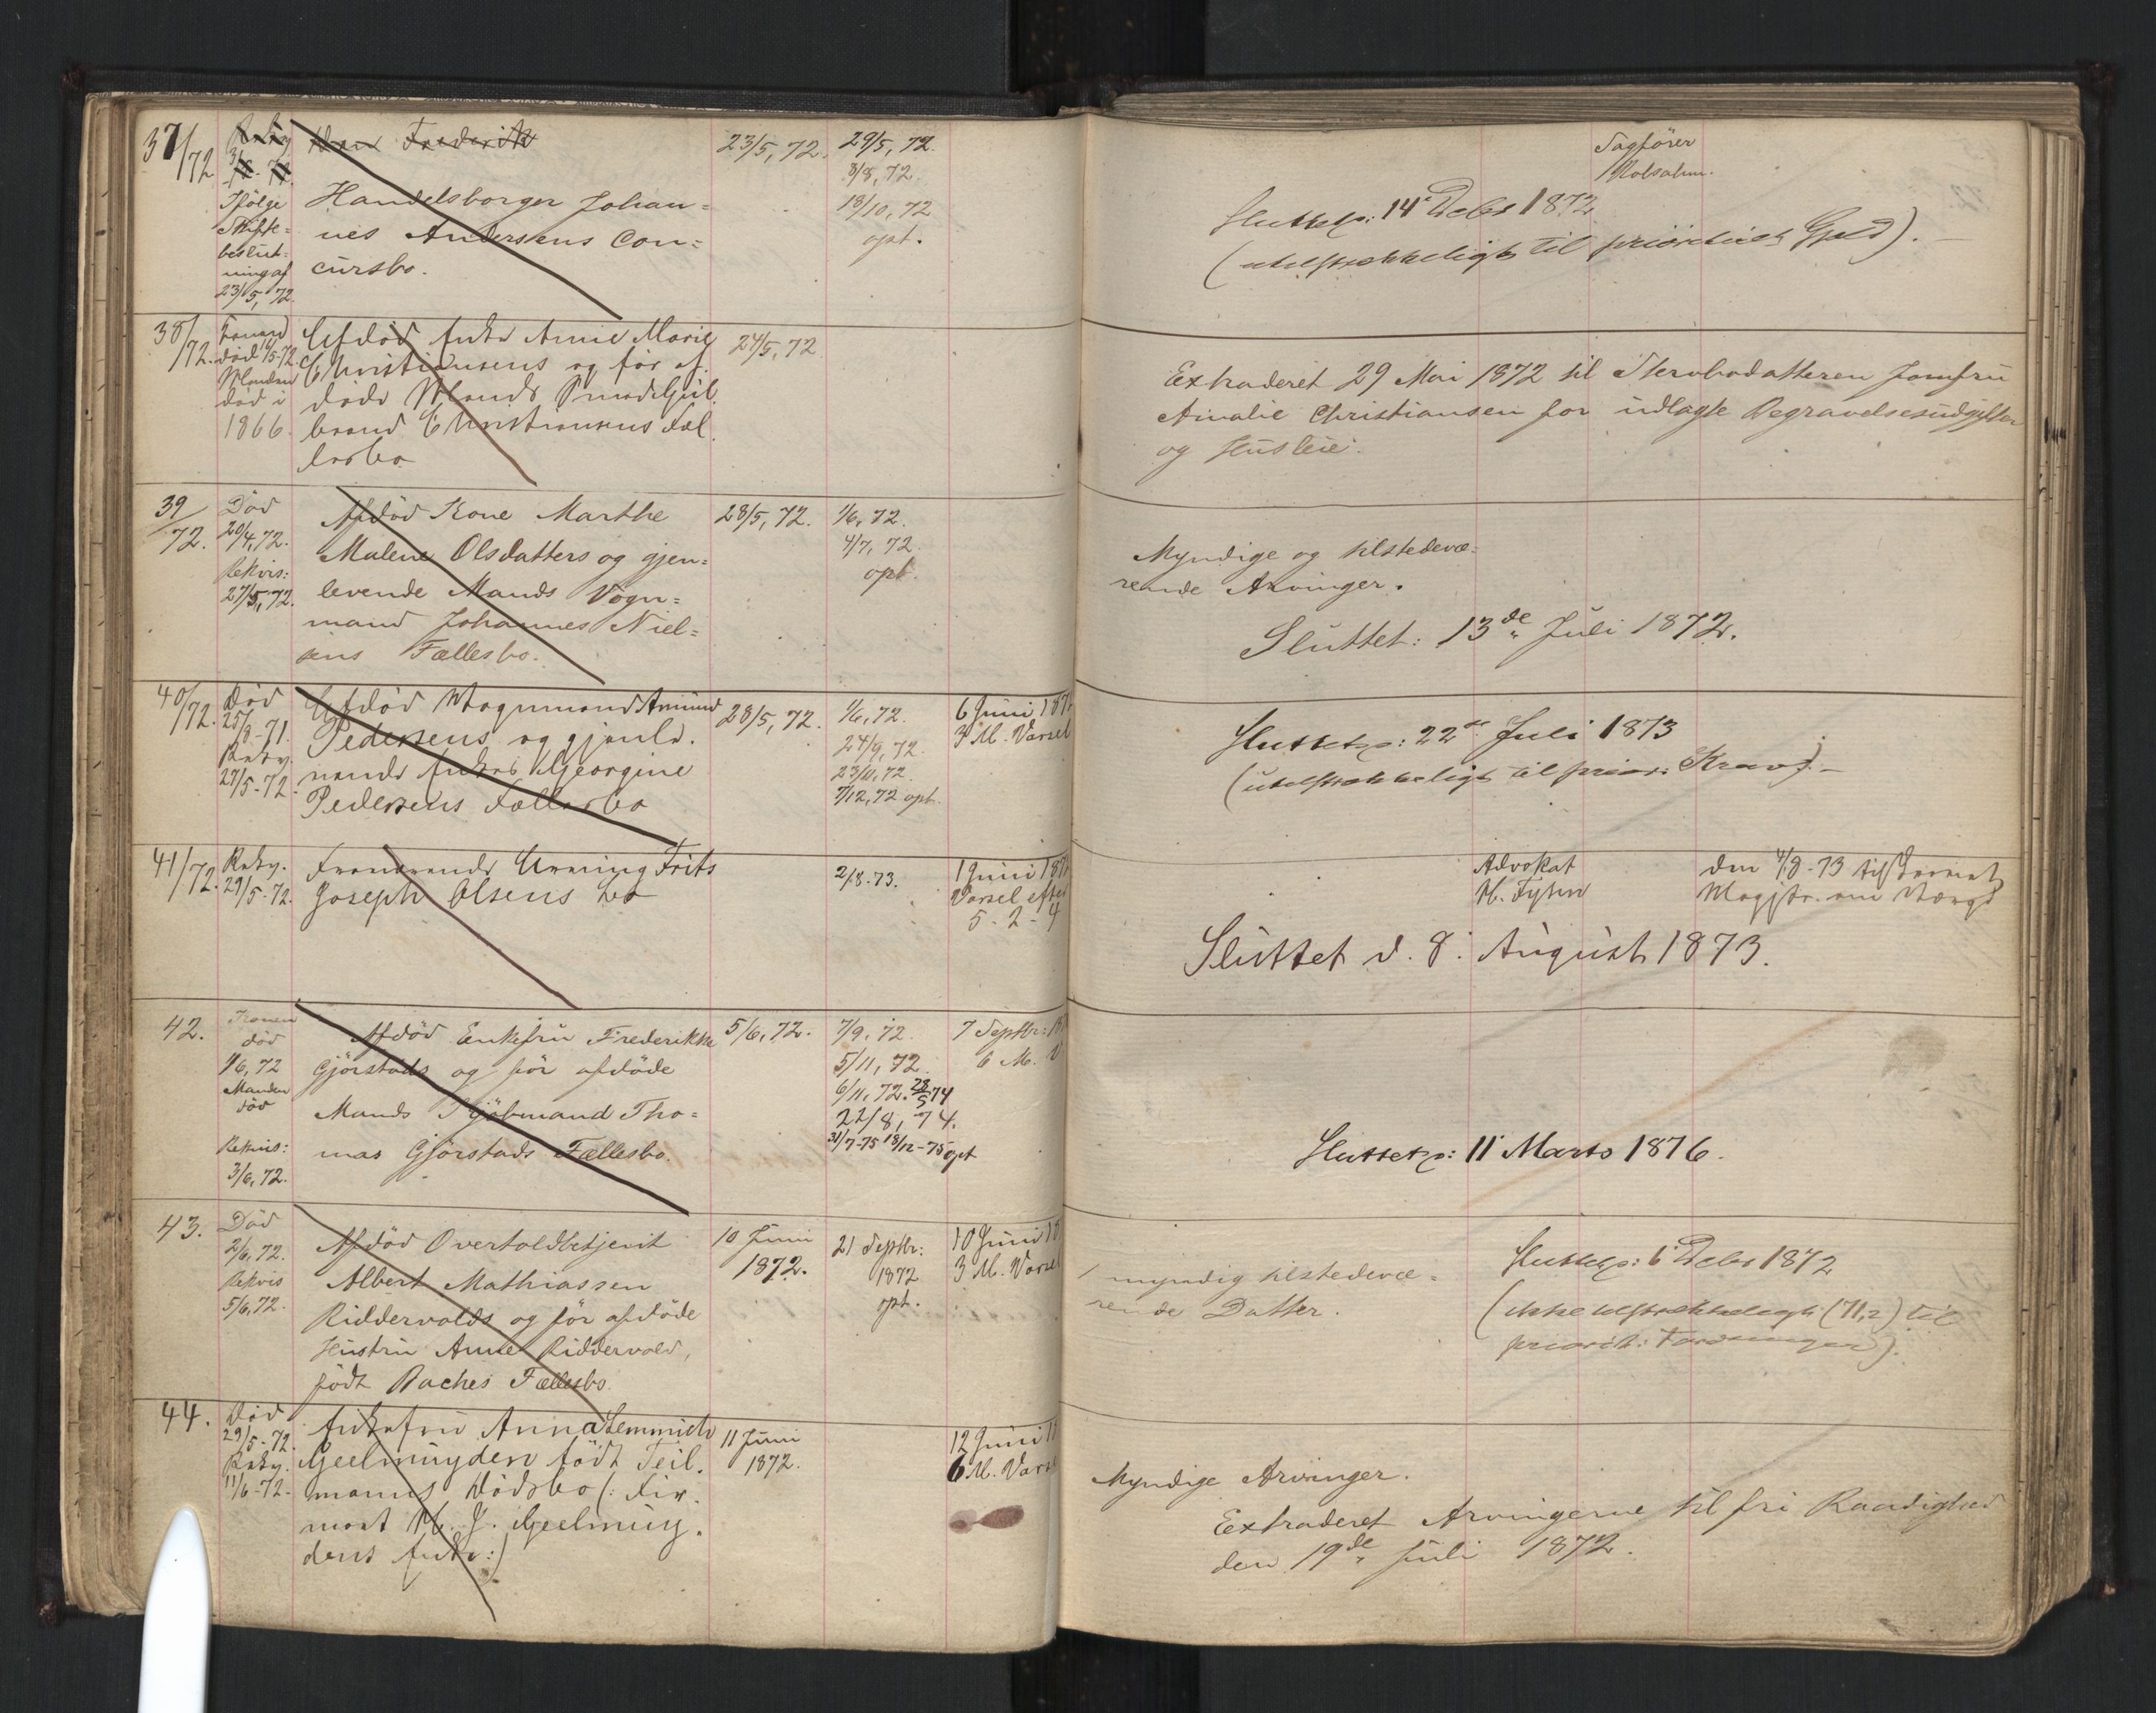 37/72
23/5, 72.
29/5, 72.
8/8, 72.
18/10, 72
opt.
Ifölge
Skifte=
beslut=
ning af
23/5, 72.
Handelsborger Johan=
nes Andersens Con=
cursbo.
Sagfører
Sluttet: 14de Decbr 1872
(utilstrækkeligt til prioriteret Gjæld).
38/72.
død 16/5-72.
Manden
død i
1866.
Afdød Enke Anne Marie
Christiansens og før af.
døde Mands
brand Christiansens Fæl
lesbo
24/5, 72
Extraderet 29 Mai 1872 til Stervbodatteren Jomfru
Amalie Christiansen for udlagte Begravelsesudgifter
og Husleie.
39/72.
Död
20/4, 72.
Rekvis:
27/5, 72.
Afdöd Kone Marthe
Malene Olsdatters og gjen=
levende Mands Vogn=
mand Johannes Niel=
sens Fællesbo.
28/5, 72.
1/6, 72.
4/7, 72.
opt.
Myndige og tilstedevæ=
rende Arvinger.
Sluttet: 13de Juli 1872.
40/72.
Død
25/8-71.
Rekv.
27/5-72.
Afdød Vognmand Amund
Pedersens og gjenle.
vende Enkes Georgine
Pedersens Fællesbo
28/5, 72.
1/6, 72.
24/9, 72.
23/11, 72.
7/12, 72 opt.
6 Juni 187
3 M. Varsel
Sluttet: 22de Juli 1873
(utilstrækkeligt til prior: Krav).
41/72.
Rekv.
29/5-72.
Fraværende Urning Frits
Joseph Olsens bo
2/8-73.
1 Juni 187
Varsel efter
5-2-4
Advokat
den 4/8-73 tilskrevet
Magistr. om Værge
Sluttet d. 8. August 1873.
42.
Konen
död
1/6, 72
Manden
död
Rekvis:
3/6, 72.
Afdöd Enkefru Frederikke
Gjörstads og för afdöde
Mands Kjöbmand Tho=
mas Gjörstads Fællesbo.
5/6, 72.
7/9, 72.
5/11, 72.
6/11, 72. 28/5 74
22/8, 74.
31/7-75 18/12-75 opt
7 Septbr: 18
6 M. V
Sluttet: 11 Marts 1876.
43.
Död
2/6, 72.
Rekvis
5/6, 72.
Afdöd Overtoldbetjent
Albert Mathiassen
Riddervolds og för afdöde
Hustru Anne Riddervold,
födt Baches Fællesbo.
10 Juni
1872.
21 Septbr:
1872
opt.
10 Juni 18
3 M. Varsel
1 myndig tilstedevæ=
rende Datter.
Sluttet: 6 Decbr 1872
(ikke tilstrækkeligt (71,2) til
priorit: Fordringer).
44.
Død
29/5-72.
Rekv.
11/6-72.
Enkefru Anna Lemmich
Geelmuyden født Teil.
manns Dødsbo (: Fir.
mært H. J. Geelmuy.
dens Enke:)
11 Juni
1872.
12 Juni 1
6 M. Varsel
Myndige Arvinger.
Extraderet Arvingerne til fri Raadighed
den 19de Juli 1872.